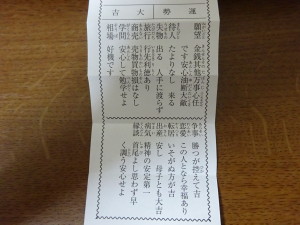 運勢大吉
願望 金銭其他万事心任
です安心油断大敵
待人 たよりなし 来る
失物 出る 人手に渡らず
旅行 行先利徳あり
商売 売物買物損はなし
学問 安心して勉学せよ
相場 好機です
争事 勝つが控えて吉
恋愛 この人となら幸福あり
転居 いそがぬ方が吉
出産 安し 母子とも大吉
病気 精神の安定第一
縁談 首尾よし思わず早
く調う安心せよ